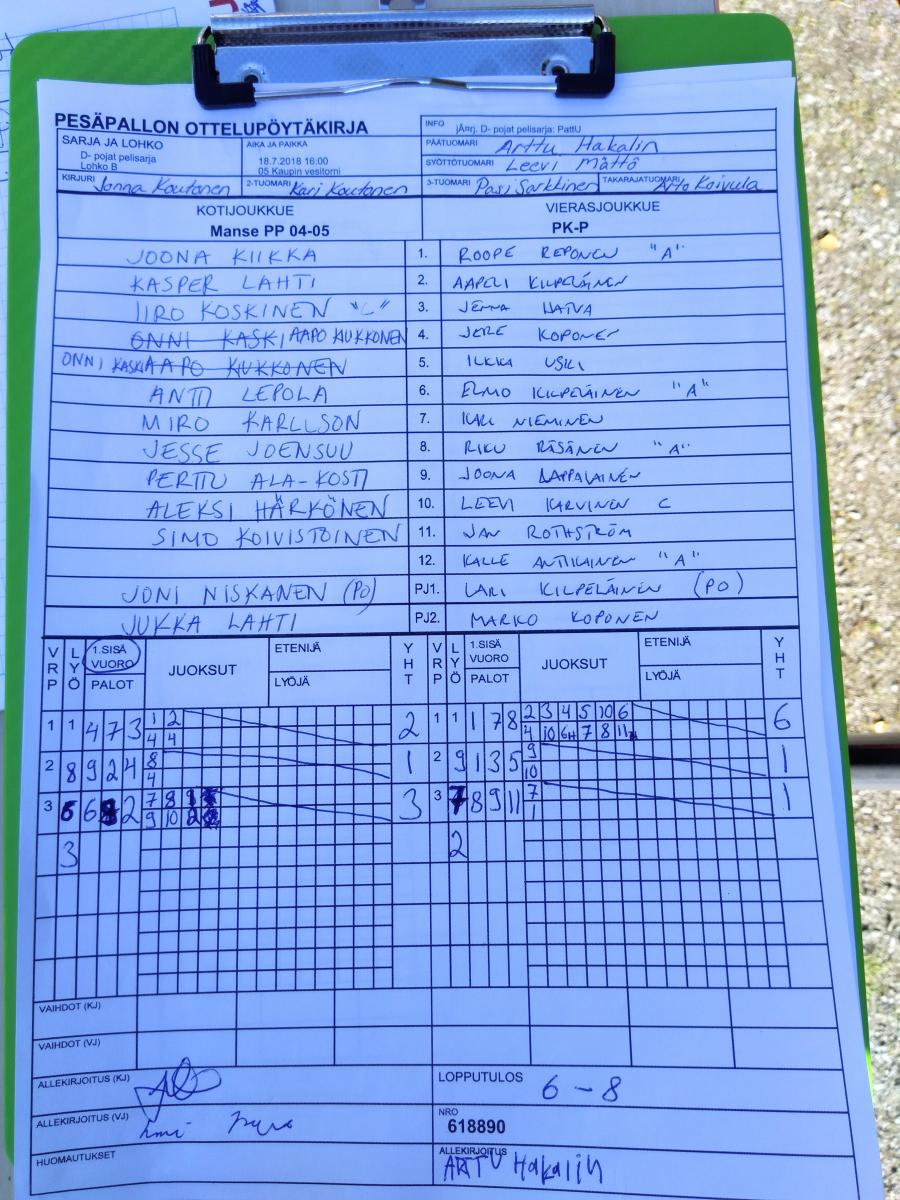 PESÄPALLON OTTELUPÖYTÄKIRJA
INFO jÄnrj. D- pojat pelisarja: PattU
SARJA JA LOHKO
D- pojat pelisarja
Lohko B
AIKA JA PAIKKA
18.7.2018 16:00
05 Kaupin vesitorni
PÄÄTUOMARI Arttu Hakalin
SYÖTTÖTUOMARI Leevi Mättö
KIRJURI Jonna Koutonen 2-TUOMARI Kari Koutonen 3-TUOMARI Pasi Sarkkinen TAKARAJATUOMARI Arto Koivula
KOTIJOUKKUE VIERASJOUKKUE
Manse PP 04-05 PK-P
JOONA KIIKKA 1. ROOPE REPONEN "A"
KASPER LAHTI 2. AAPELI KILPELÄINEN
IIRO KOSKINEN "L" 3. JENNA HATVA
ONNI KASKI AAPO KIUKKONEN 4. JERE KOPONEN
ONNI KASKI AAPO KIUKKONEN 5. ILKKA USKI
ANTTI LEPOLA 6. ELMO KILPELÄINEN "A"
MIRO KARLLSON 7. KALL NIEMINEN
JESSE JOENSUU 8. RIKU RÄSÄNEN "A"
PERTTU ALA-KOSTI 9. JOONA LAPPALAINEN
ALEKSI HÄRKÖNEN 10. LEEVI KARVINEN C
SIMO KOIVISTOINEN 11. JAN ROTHSTRÖM
12. KALLE ANTIKAINEN "A"
JONI NISKANEN (PO) PJ1. LARI KILPELÄINEN (PO)
JUKKA LAHTI PJ2. MARKO KOPONEN
VRP LYÖ 1.SISÄ VUORO PALOT JUOKSUT ETENIJÄ LYÖJÄ YHT VRP LYÖ 1.SISÄ VUORO PALOT JUOKSUT ETENIJÄ LYÖJÄ YHT
1 1 4 7 3 1 2 2 1 1 1 7 8 2 3 4 5 10 6 6
4 4 4 10 6H 7 8 11
2 8 9 2 4 8 1 2 9 1 3 5 9 1
4 10
3 6 6 2 7 8 9 3 3 7 8 9 11 7 1
9 10 2 1
3 2
VAIHDOT (KJ)
VAIHDOT (VJ)
ALLEKIRJOITUS (KJ) LOPPUTULOS 6 - 8
ALLEKIRJOITUS (VJ) NRO
618890
HUOMAUTUKSET ALLEKIRJOITUS
ARTTU Hakalin